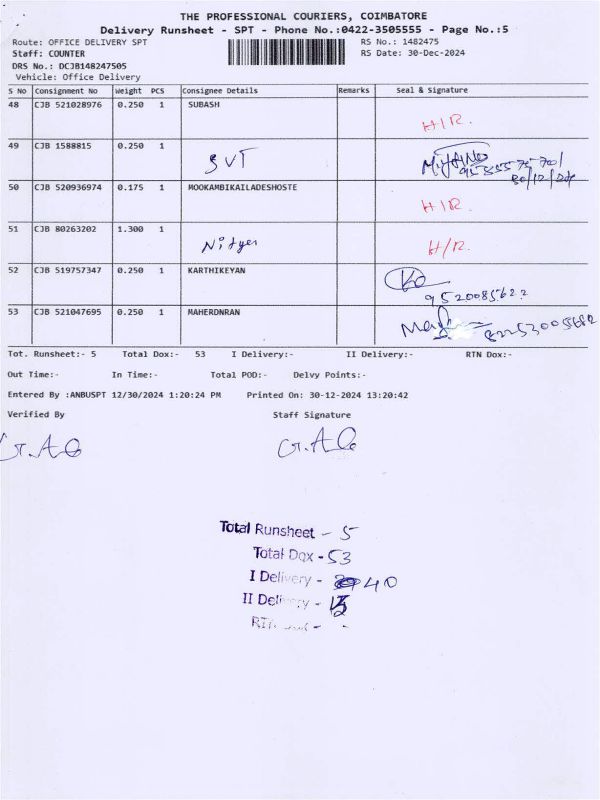 THE PROFESSIONAL COURIERS, COIMBATORE
Delivery Runsheet - SPT - Phone No.:0422-3505555 - Page No.:5
Route: OFFICE DELIVERY SPT RS No.: 1482475
Staff: COUNTER RS Date: 30-Dec-2024
DRS No.: DCJB148247505
Vehicle: Office Delivery
S No Consignment No Weight PCS Consignee Details Remarks Seal & Signature
48 CJB 521028976 0.250 1 SUBASH H/R.
49 CJB 1588815 0.250 1 SVT
30/12/24
50 CJB 520936974 0.175 1 MOOKAMBIKAILADESHOSTE H/R.
51 CJB 80263202 1.300 1 H/R.
52 CJB 519757347 0.250 1 KARTHIKEYAN
9520085622
53 CJB 521047695 0.250 1 MAHERDNRAN
Tot. Runsheet:- 5 Total Dox:- 53 I Delivery:- II Delivery:- RTN Dox:-
Out Time:- In Time:- Total POD:- Delvy Points:-
Entered By :ANBUSPT 12/30/2024 1:20:24 PM Printed On: 30-12-2024 13:20:42
Verified By Staff Signature
Total Runsheet - 5
Total Dox - 53
I Delivery - 40
II Delivery -